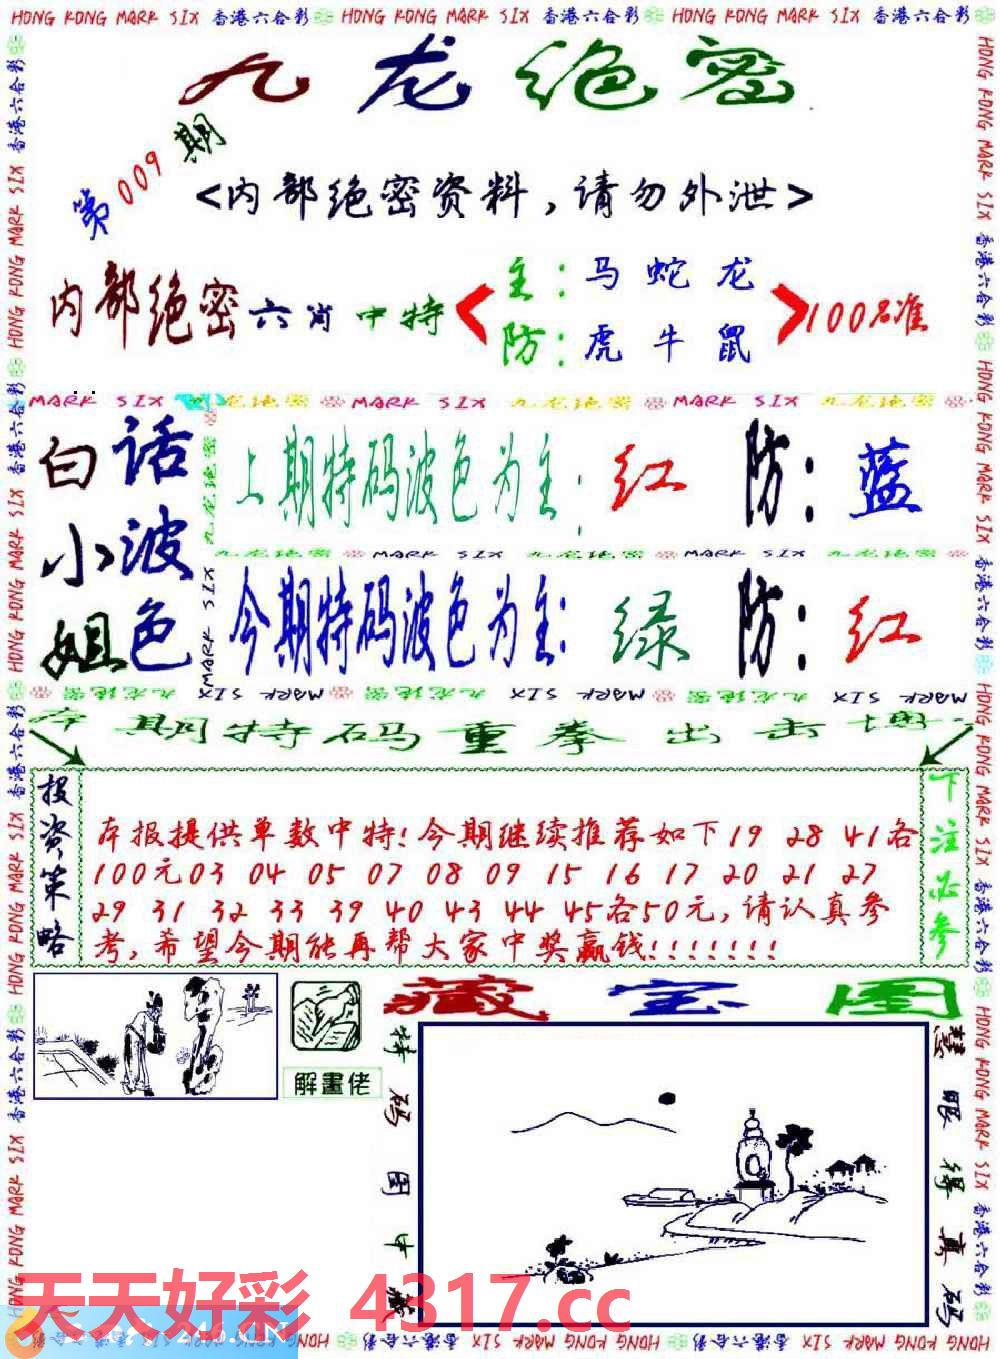 HONG KONG MARK SIX 香港六合彩 HONG KONG MARK SIX 香港六合彩 HONG KONG MARK SIX 香港六合彩
九龙绝密
第009期
<内部绝密资料，请勿外泄>
内部绝密六肖中特
主：马 蛇 龙
防：虎 牛 鼠
100%准
MARK SIX 九龙绝密 MARK SIX 九龙绝密 MARK SIX 九龙绝密
白小姐
话波色
上期特码波色为主：红 防：蓝
九龙绝密 MARK SIX 九龙绝密 MARK SIX 九龙绝密
今期特码波色为主：绿 防：红
本期特码重拳出击
投资策略
本报提供单数中特！今期继续推荐如下19 28 41各
100元03 04 05 07 08 09 15 16 17 20 21 27
29 31 32 33 39 40 43 44 45各50元，请认真参
考，希望今期能再帮大家中奖赢钱！！！！！！！
下注必参
解畫佬
藏宝图
特码图中藏
慧眼得真码
天天好彩 4317.cc